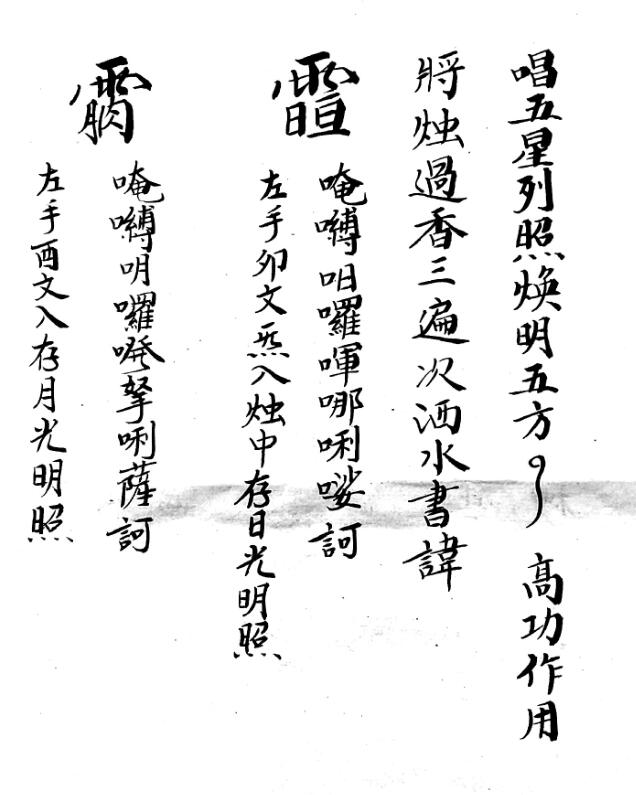 唱五星列照煥明五方 高功作用
將烛過香三遍次洒水書諱
唵嚩呾囉喗哪唎娑訶
左手卯文炁入烛中存日光明照
唵嚩明囉𠸪拏唎薩訶
左手酉文入存月光明照